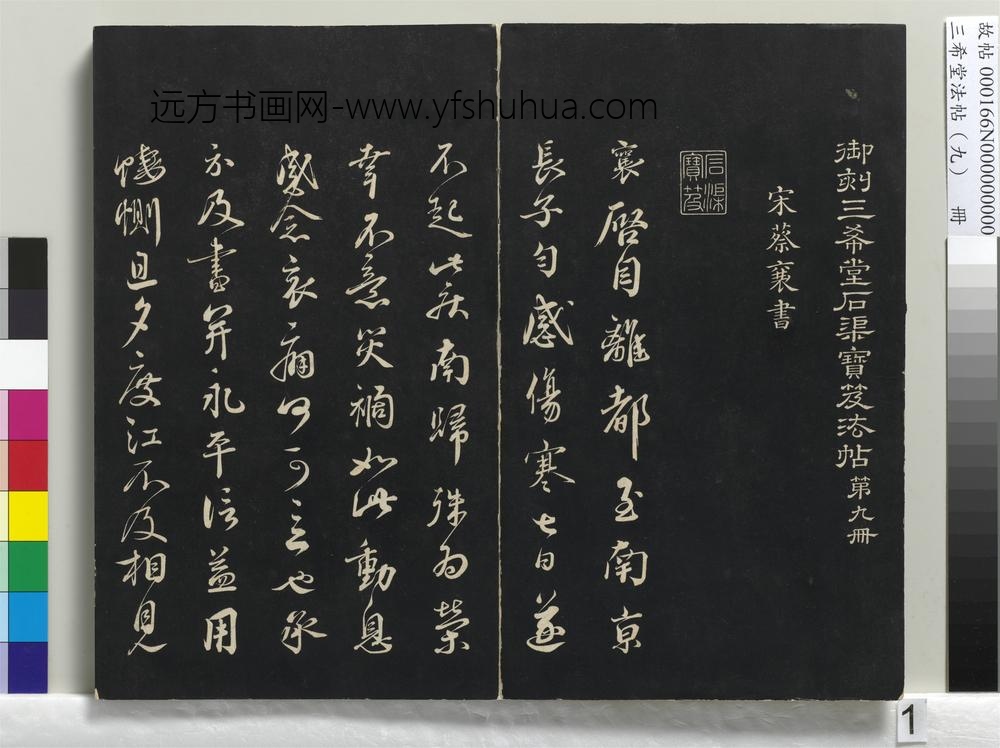 远方书画网-www.yfshuhua.com
故帖 000166N000000000
三希堂法帖(九) 冊
御刻三希堂石渠寶笈法帖第九冊
宋蔡襄書
石渠寶笈
襄啓自離都至南京
長子勻感傷寒七日遂
不起此疾南歸殊為榮
幸不意災禍如此動息
感念哀痛何可言也承
示及書并永平信益用
悽惻旦夕度江不及相見
1